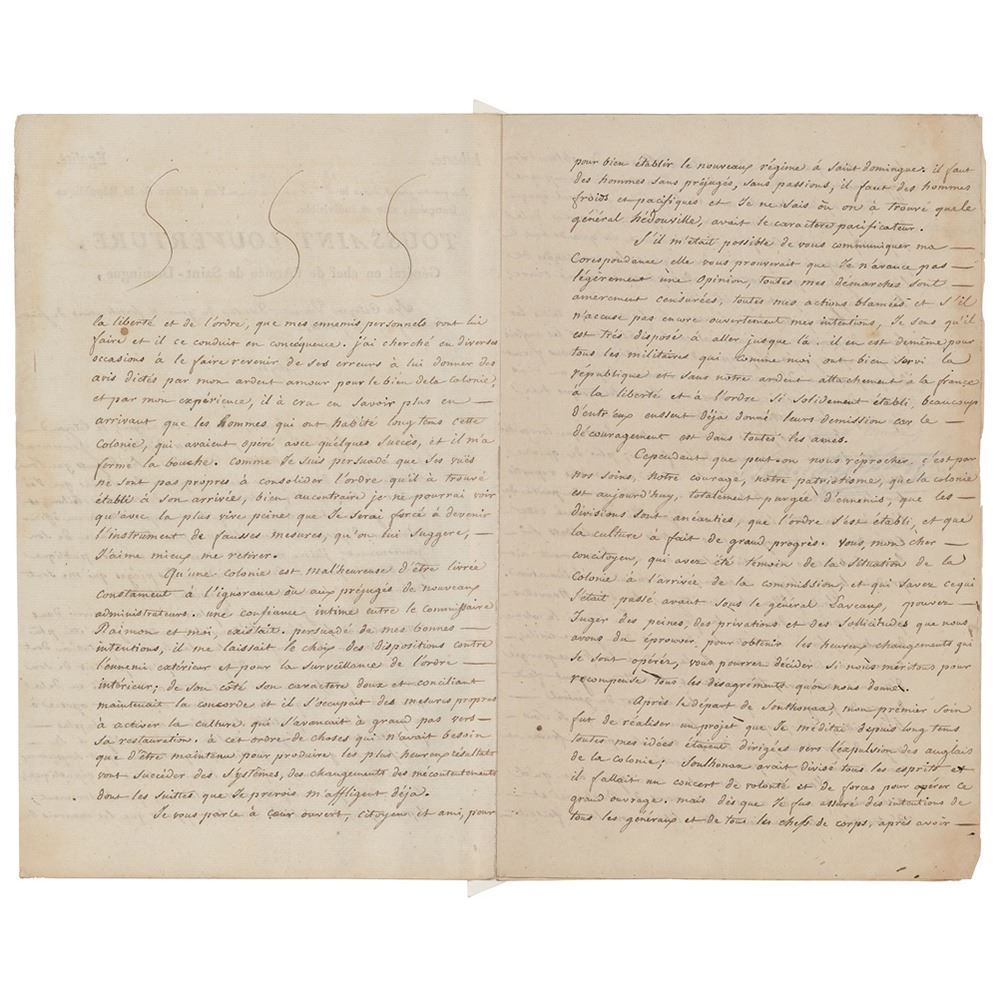 la liberté et de l'ordre, que mes ennemis personnels vont lui
faire et il ce conduit en concéquence. j'ai cherché en diverses
occasions à le faire revenir de ses erreurs à lui donner des
avis dictés par mon ardent amour pour le bien dela colonie,
et par mon expérience, il à cru en savoir plus en —
arrivant que les hommes qui ont habité long tems cette
Colonie, qui avaient opéré avec quelques succès, et il m'a
fermé la bouche. comme Je suis persuadé que ses vuës
ne sont pas propres à consolider l'ordre qu'il à trouvé
établi à son arrivée, bien aucontraire je ne pourrai voir
qu'avec la plus vive peine que Je serai forcé à devenir
l'instrument de fausses mesures, qu'on lui Suggere, —
J'aime mieux me retirer.
Qu'une colonie est mal'heureuse d'être livrée
Constament à l'ignorance ou aux préjugés de nouveaux
administrateurs. une confiance intime entre le Commissaire
Raimon et moi, existait. persuadé de mes bonnes —
intentions, il me laissait le choix des dispositions contre
l'ennemi extérieur et pour la Surveillance de l'ordre —
intérieur; de son côté son caractere doux et conciliant
maintenait la concorde et il s'occupait des mesures propres
à activer la culture qui s'avancait à grand pas vers —
sa restauration. à cet ordre de choses qui n'avait besoin
que d'être maintenu pour produire les plus heureux résultats
vont succéder des Systêmes, des changements des mécontentements
dont les Suites que Je prévois m'affligent déja.
Je vous parle à cœur ouvert, citoyen et ami, pour
pour bien établir le nouveaux régime à Saint domingue. il faut
des hommes sans préjugés, sans passions, il faut des hommes
froids et pacifiques et Je ne sais où on à trouvé quele
général hédouville, avait le caractere pacificateur.
S'il m'était possible de vous communiquer ma —
Correspondance elle vous prouverait que Je n'avance pas —
légérement une Opinion, toutes mes démarches sont —
amerement censurées, toutes mes actions blamées et s'il
n'accuse pas encore ouvertement mes intentions, Je sens qu'il
est très disposé à aller jusque là. il en est demême pour
tous les militaires qui Comme moi ont bien servi la
republique et sans notre ardent attachement à la france
à la liberté et à l'ordre si solidement établi, beaucoup
d'entr'eux eussent déja donné leurs demission car le —
découragement est dans toutes les ames.
Cependent que peut-on nous réprocher. c'est par
nos soins, notre courage, notre patriotisme, que la colonie
est aujourd'huy, totalement purgée d'ennemis, que les —
divisions sont anéanties, que l'ordre s'est établi, et que
la culture à fait de grand progrès. vous, mon cher —
concitoyen, qui avez été témoin de la situation de la
Colonie à l'arrivée de la commission, et qui savez cequi
s'était passé avant sous le général Laveaux, pouvez —
Juger des peines, des privations et des Sollicitudes que nous
avons du éprouver pour obtenir les heureux changements qui
se sont opérez, vous pourrez décider Si nous méritons pour
recompense tous les désagréments qu'on nous donne.
Après le départ de Sonthonax, mon prémier soin
fut de réaliser un projet que Je méditai depuis long tems
toutes mes idées étaient dirigées vers l'expulsion des anglais
de la colonie; Sonthonax avait divisé tous les esprits et
il fallait un concert de volonté et de forces pour opérer ce
grand ouvrage. mais dès que Je fus assuré des intentions de
tous les généraux et de tous les chefs de corps, après avoir —